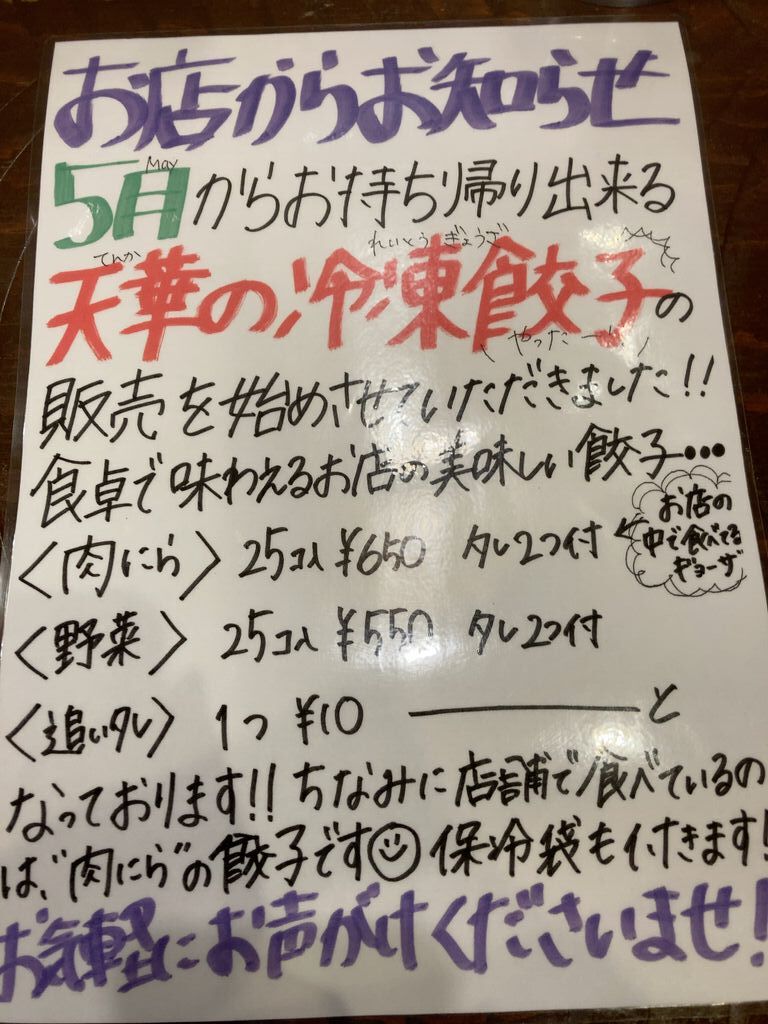 お店からお知らせ
May
5月からお持ち帰り出来る
てんか れいとうぎょうざ
天華の冷凍餃子の
やったー!!
販売を始めさせていただきました!!
食卓で味わえるお店の美味しい餃子…
〈肉にら〉 25コ入 ¥650 タレ2つ付
お店の
中で食べてる
ギョーザ
〈野菜〉 25コ入 ¥550 タレ2つ付
〈追いタレ〉 1つ ¥10 ―――と
なっております!! ちなみに店舗で食べているの
は、"肉にら"の餃子です☺ 保冷袋も付きます!
お気軽にお声がけくださいませ!